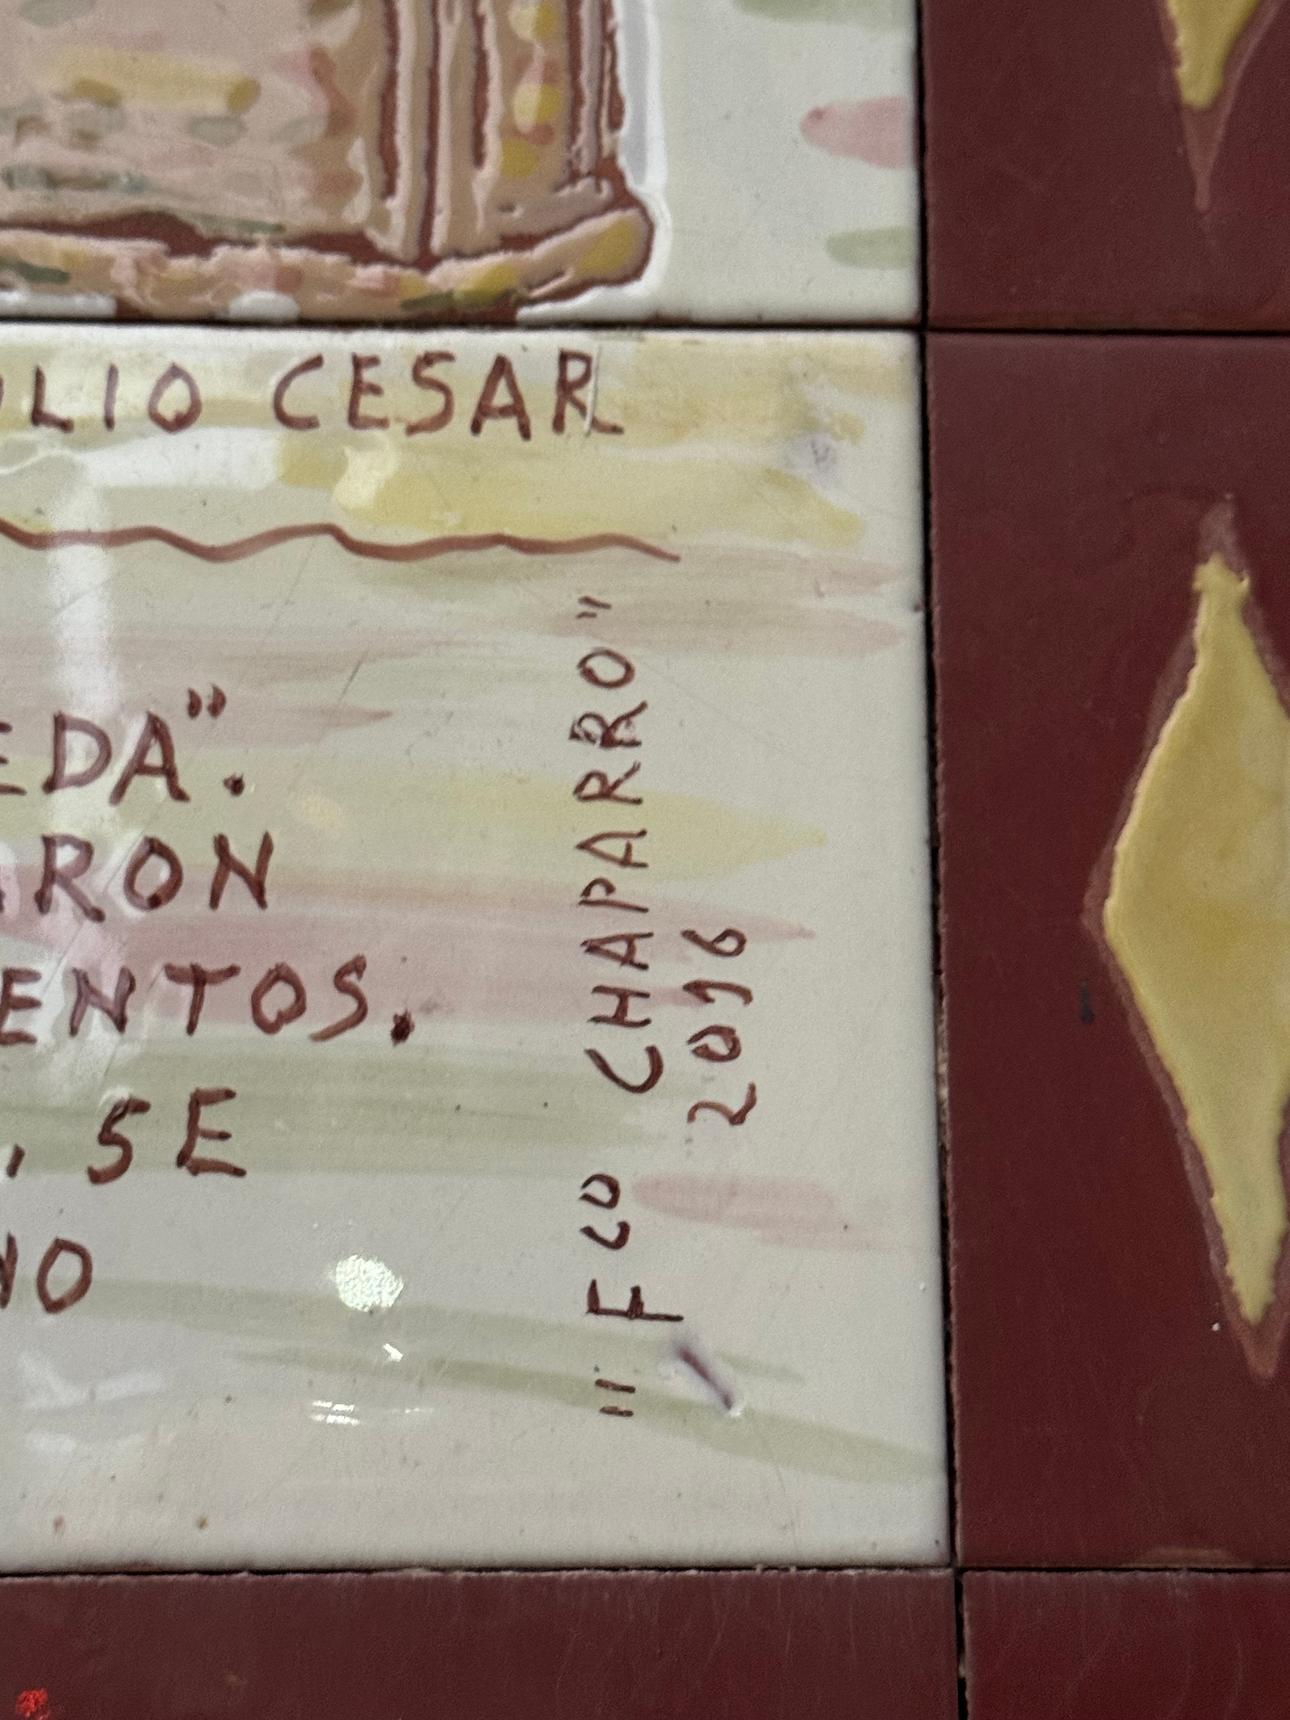 ULIO CESAR
EDA".
ARON
ENTOS.
, SE
NO
"Fco CHAPARRO"
2016